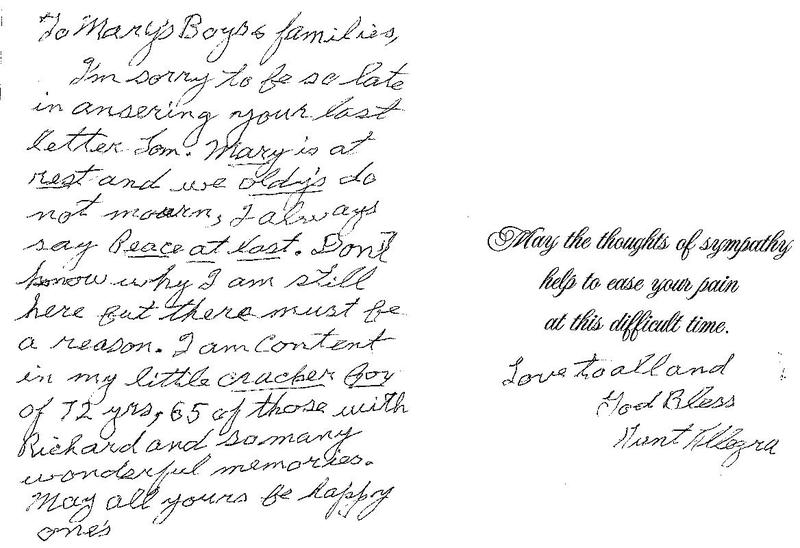 To Mary's Boys & families,
I'm sorry to be so late
in ansering your last
letter Tom. Mary is at
rest and we oldy's do
not mourn, I always
say Peace at last. Don't
know why I am still
here but there must be
a reason. I am content
in my little cracker Box
of 72 yrs, 65 of those with
Richard and so many
wonderful memories.
May all yours be happy
one's
May the thoughts of sympathy
help to ease your pain
at this difficult time.
Love to all and
God Bless
Aunt Allegra